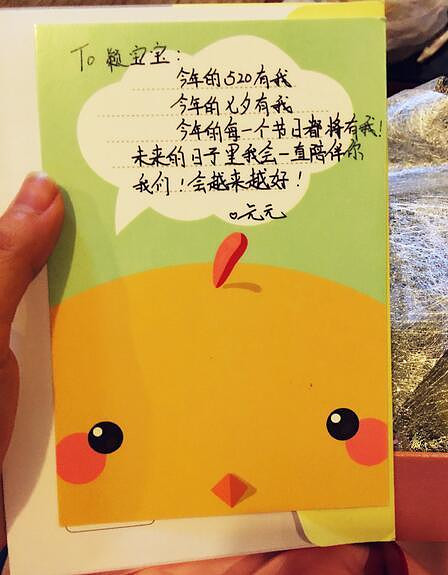 To 颖宝宝:
今年的520有我
今年的七夕有我
今年的每一个节日都将有我!
未来的日子里我会一直陪伴你
我们!会越来越好!
♡元元